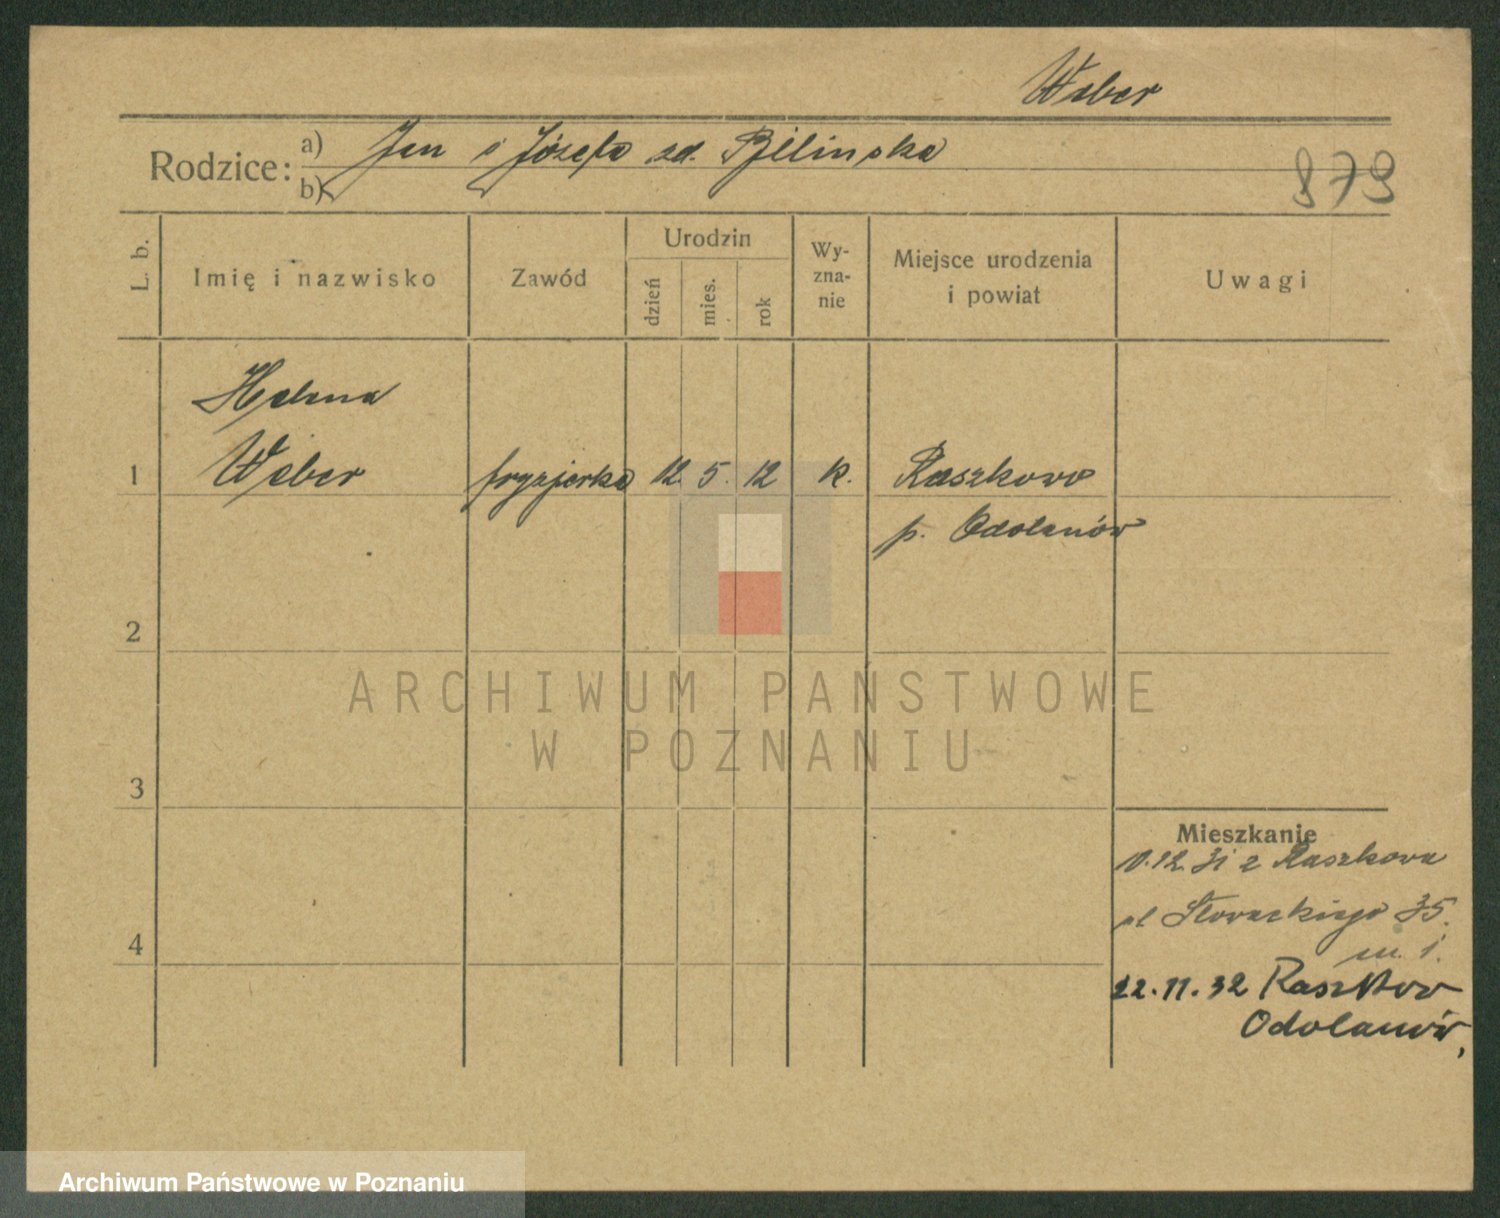 Weber
Rodzice: a) Jan i Józefa zd. Bilinska
b)
879
L. b.
Imię i nazwisko
Zawód
Urodzin
dzień
mies.
rok
Wy-
zna-
nie
Miejsce urodzenia
i powiat
Uwagi
Helena
1 Weber fryzjerka 12. 5. 12 k. Raszkowo
p. Odolanów
2
ARCHIWUM PAŃSTWOWE
W POZNANIU
3
Mieszkanie
0.12.31 z Raszkowa
ul Słowackiego 35.
4
m. 1.
22.11.32 Raszków
Odolanów,
Archiwum Państwowe w Poznaniu